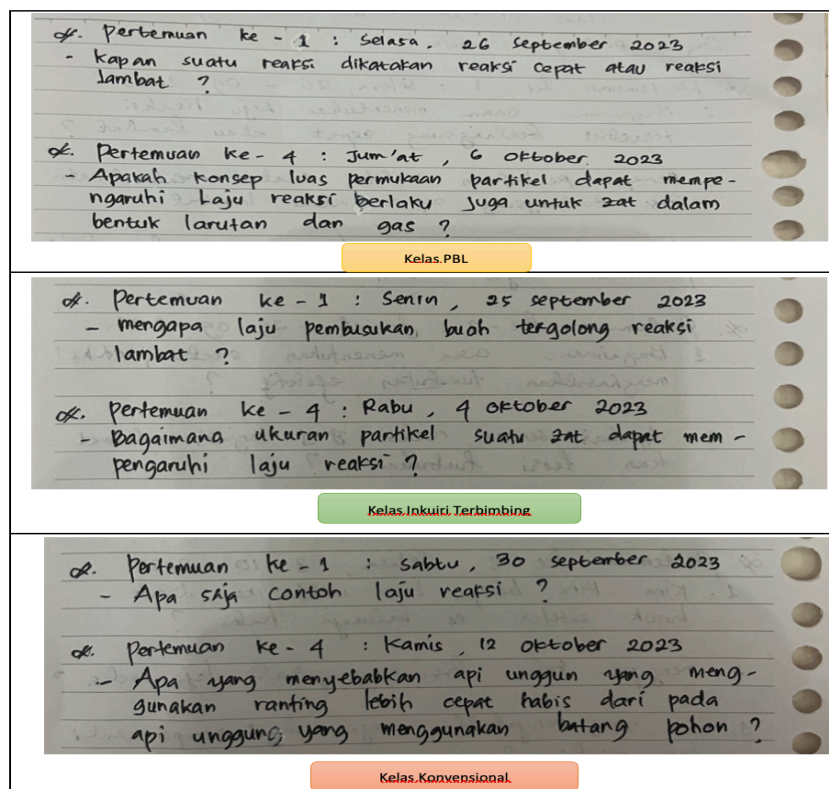 Pertemuan ke - 1 : Selasa, 26 September 2023
- Kapan suatu reaksi dikatakan reaksi cepat atau reaksi
lambat ?
Pertemuan ke - 4 : Jum'at , 6 Oktober 2023
- Apakah konsep luas permukaan partikel dapat mempe -
ngaruhi Laju reaksi berlaku juga untuk zat dalam
bentuk larutan dan gas ?
Kelas PBL
Pertemuan ke - 1 : Senin , 25 september 2023
- mengapa laju pembusukan buah tergolong reaksi
lambat ?
Pertemuan ke - 4 : Rabu , 4 oktober 2023
- Bagaimana ukuran partikel suatu zat dapat mem -
pengaruhi laju reaksi ?
Kelas Inkuiri Terbimbing
Pertemuan ke - 1 : Sabtu, 30 september 2023
- Apa saja contoh laju reaksi ?
Pertemuan ke - 4 : Kamis , 12 oktober 2023
- Apa yang menyebabkan api unggun yang meng -
gunakan ranting lebih cepat habis dari pada
api unggung yang menggunakan batang pohon ?
Kelas Konvensional